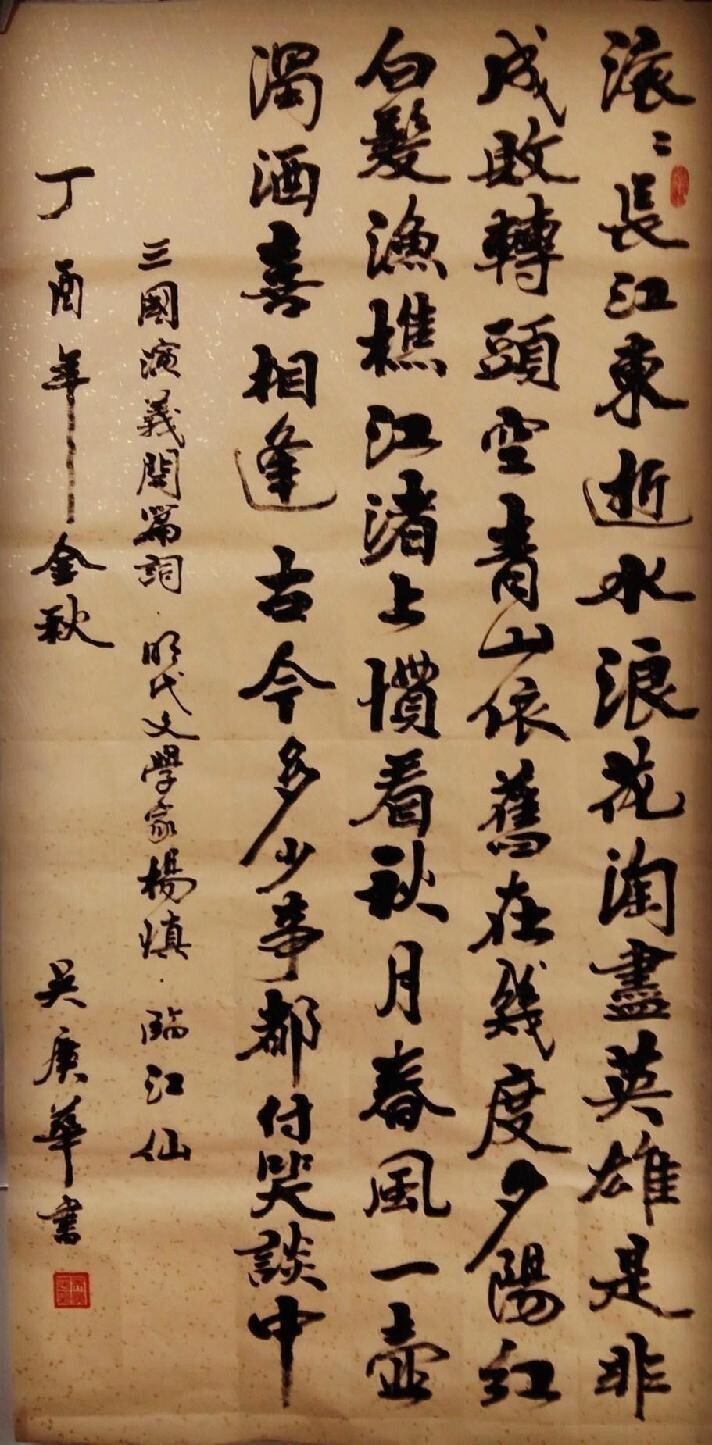 滾〻長江東逝水浪花淘盡英雄是非
成敗轉頭空青山依舊在幾度夕陽紅
白髮漁樵江渚上慣看秋月春風一壺
濁酒喜相逢古今多少事都付笑談中
三國演義開篇詞·明代文學家楊慎·臨江仙
丁酉年金秋
吳庚華書